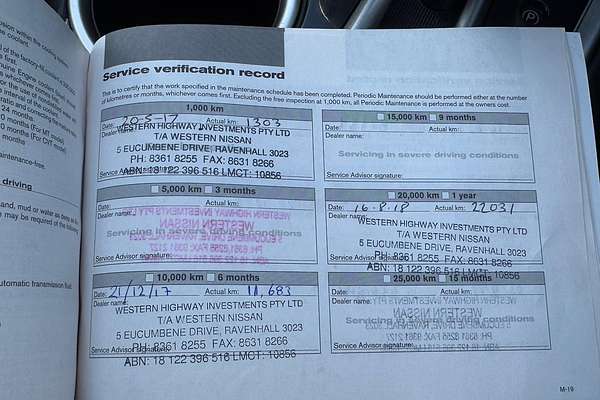 osion within the cooling
coolant.
first.
of the factory-fill coolant
nuine Engine coolant
s which come first
interval of the coolant
24 months
0 months (For MT model)
0 months (For CVT model)
maintenance-free.
driving
automatic transmission fluid
Service verification record
This is to certify that the work specified in the maintenance schedule has been completed. Periodic Maintenance should be performed either at the number
of kilometres or months, whichever comes first. Excluding the free inspection at 1,000 km, all Periodic Maintenance is performed at the owners cost.
1,000 km
Date: 20-5-17 Actual km: 1303
WESTERN HIGHWAY INVESTMENTS PTY LTD
T/A WESTERN NISSAN
5 EUCUMBENE DRIVE, RAVENHALL 3023
PH: 8361 8255 FAX: 8631 8266
Service Advisor signature:
ABN: 18 122 396 516 LMCT: 10856
15,000 km 9 months
Date: Actual km:
Dealer name:
Servicing in severe driving conditions
Service Advisor signature:
5,000 km 3 months
Date: Actual km:
Dealer name:
WESTERN HIGHWAY INVESTMENTS PTY LTD
WESTERN NISSAN
Servicing in severe driving conditions
Service Advisor signature:
20,000 km 1 year
Date: 16-8-18 Actual km: 22031
Dealer name:
WESTERN HIGHWAY INVESTMENTS PTY LTD
T/A WESTERN NISSAN
5 EUCUMBENE DRIVE, RAVENHALL 3023
PH: 8361 8255 FAX: 8631 8266
Service Advisor signature:
ABN: 18 122 396 516 LMCT: 10856
10,000 km 6 months
Date: 21/12/17 Actual km: 11,683
Dealer name:
WESTERN HIGHWAY INVESTMENTS PTY LTD
T/A WESTERN NISSAN
5 EUCUMBENE DRIVE, RAVENHALL 3023
PH: 8361 8255 FAX: 8631 8266
Service Advisor signature:
ABN: 18 122 396 516 LMCT: 10856
25,000 km 15 months
Date: Actual km:
Dealer name:
WESTERN NISSAN
Servicing in severe driving conditions
Service Advisor signature:
M-19